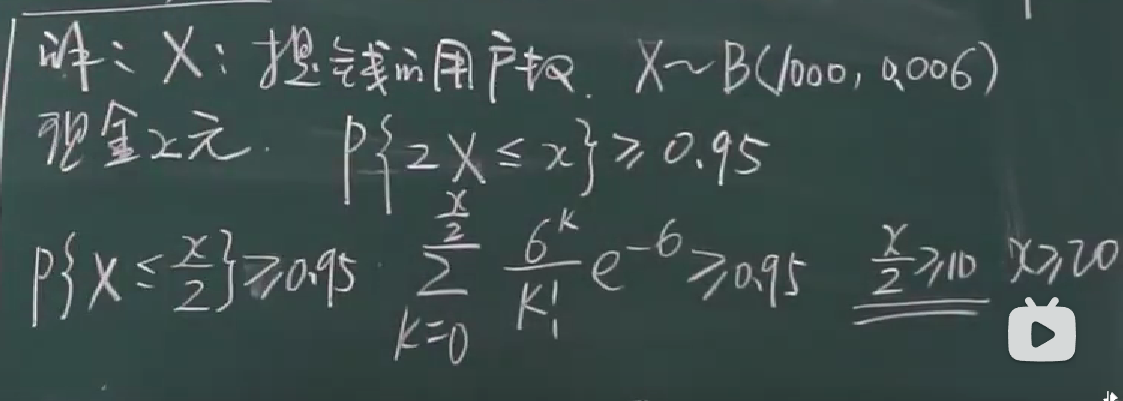 解：X：提钱的用户数. X~B(1000, 0.006)
现金x元. P{2X ≤ x} ≥ 0.95
P{X ≤ x/2} ≥ 0.95 \sum_{k=0}^{x/2} 6^k/k! e^{-6} ≥ 0.95 x/2 ≥ 10 x ≥ 20